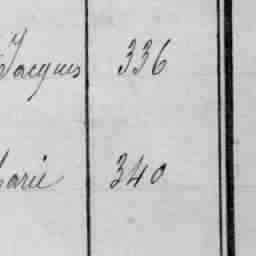 Jacques 336
Marie 340